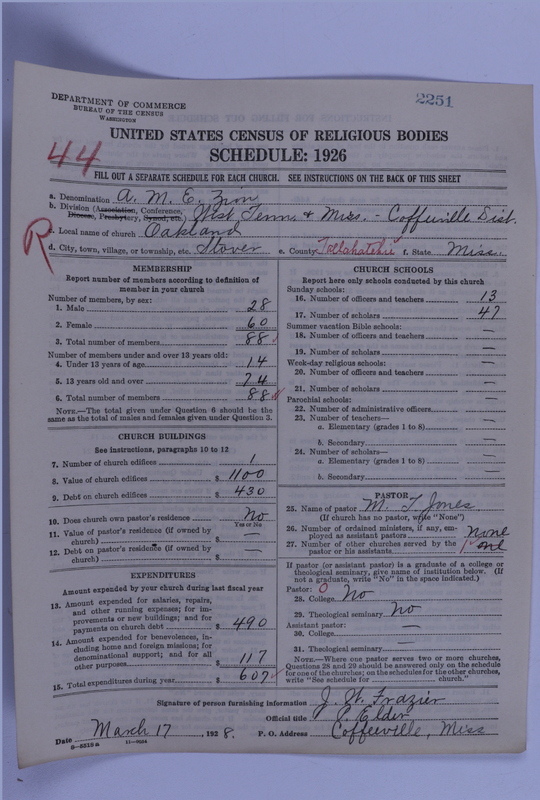 2251
DEPARTMENT OF COMMERCE
BUREAU OF THE CENSUS
WASHINGTON
UNITED STATES CENSUS OF RELIGIOUS BODIES
SCHEDULE: 1926
44
FILL OUT A SEPARATE SCHEDULE FOR EACH CHURCH. SEE INSTRUCTIONS ON THE BACK OF THIS SHEET
a. Denomination A. M. E. Zion
b. Division (Association, Conference, Diocese, Presbytery, Synod, etc.) West Tenn & Miss. - Coffeeville Dist.
R
c. Local name of church Oakland
d. City, town, village, or township, etc. Stover e. County Tallahatchie f. State Miss.
MEMBERSHIP
Report number of members according to definition of member in your church
Number of members, by sex:
1. Male 28
2. Female 60
3. Total number of members 88
Number of members under and over 13 years old:
4. Under 13 years of age 14
5. 13 years old and over 74
6. Total number of members 88
NOTE.—The total given under Question 6 should be the same as the total of males and females given under Question 3.
CHURCH BUILDINGS
See instructions, paragraphs 10 to 12
7. Number of church edifices 1
8. Value of church edifices $ 1100
9. Debt on church edifices $ 430
10. Does church own pastor's residence No
Yes or No
11. Value of pastor's residence (if owned by church) $
12. Debt on pastor's residence (if owned by church) $ —
EXPENDITURES
Amount expended by your church during last fiscal year
13. Amount expended for salaries, repairs, and other running expenses; for improvements or new buildings; and for payments on church debt $ 490
14. Amount expended for benevolences, including home and foreign missions; for denominational support; and for all other purposes $ 117
15. Total expenditures during year $ 607
CHURCH SCHOOLS
Report here only schools conducted by this church
Sunday schools:
16. Number of officers and teachers 13
17. Number of scholars 47
Summer vacation Bible schools:
18. Number of officers and teachers —
19. Number of scholars —
Week-day religious schools:
20. Number of officers and teachers —
21. Number of scholars —
Parochial schools:
22. Number of administrative officers —
23. Number of teachers—
a. Elementary (grades 1 to 8) —
b. Secondary —
24. Number of scholars—
a. Elementary (grades 1 to 8) —
b. Secondary —
PASTOR
25. Name of pastor M. T. Jones
(If church has no pastor, write "None")
26. Number of ordained ministers, if any, employed as assistant pastors None
27. Number of other churches served by the pastor or his assistants 1 one
If pastor (or assistant pastor) is a graduate of a college or theological seminary, give name of institution below. (If not a graduate, write "No" in the space indicated.)
Pastor: 0
28. College No
29. Theological seminary No
Assistant pastor:
30. College —
31. Theological seminary —
NOTE.—Where one pastor serves two or more churches, Questions 28 and 29 should be answered only on the schedule for one of the churches; on the schedules for the other churches, write "See schedule for church."
Signature of person furnishing information J. W. Frazier
Official title P. Elder
Date March 17, 1928. P. O. Address Coffeeville, Miss
8—5519 a 11—9034